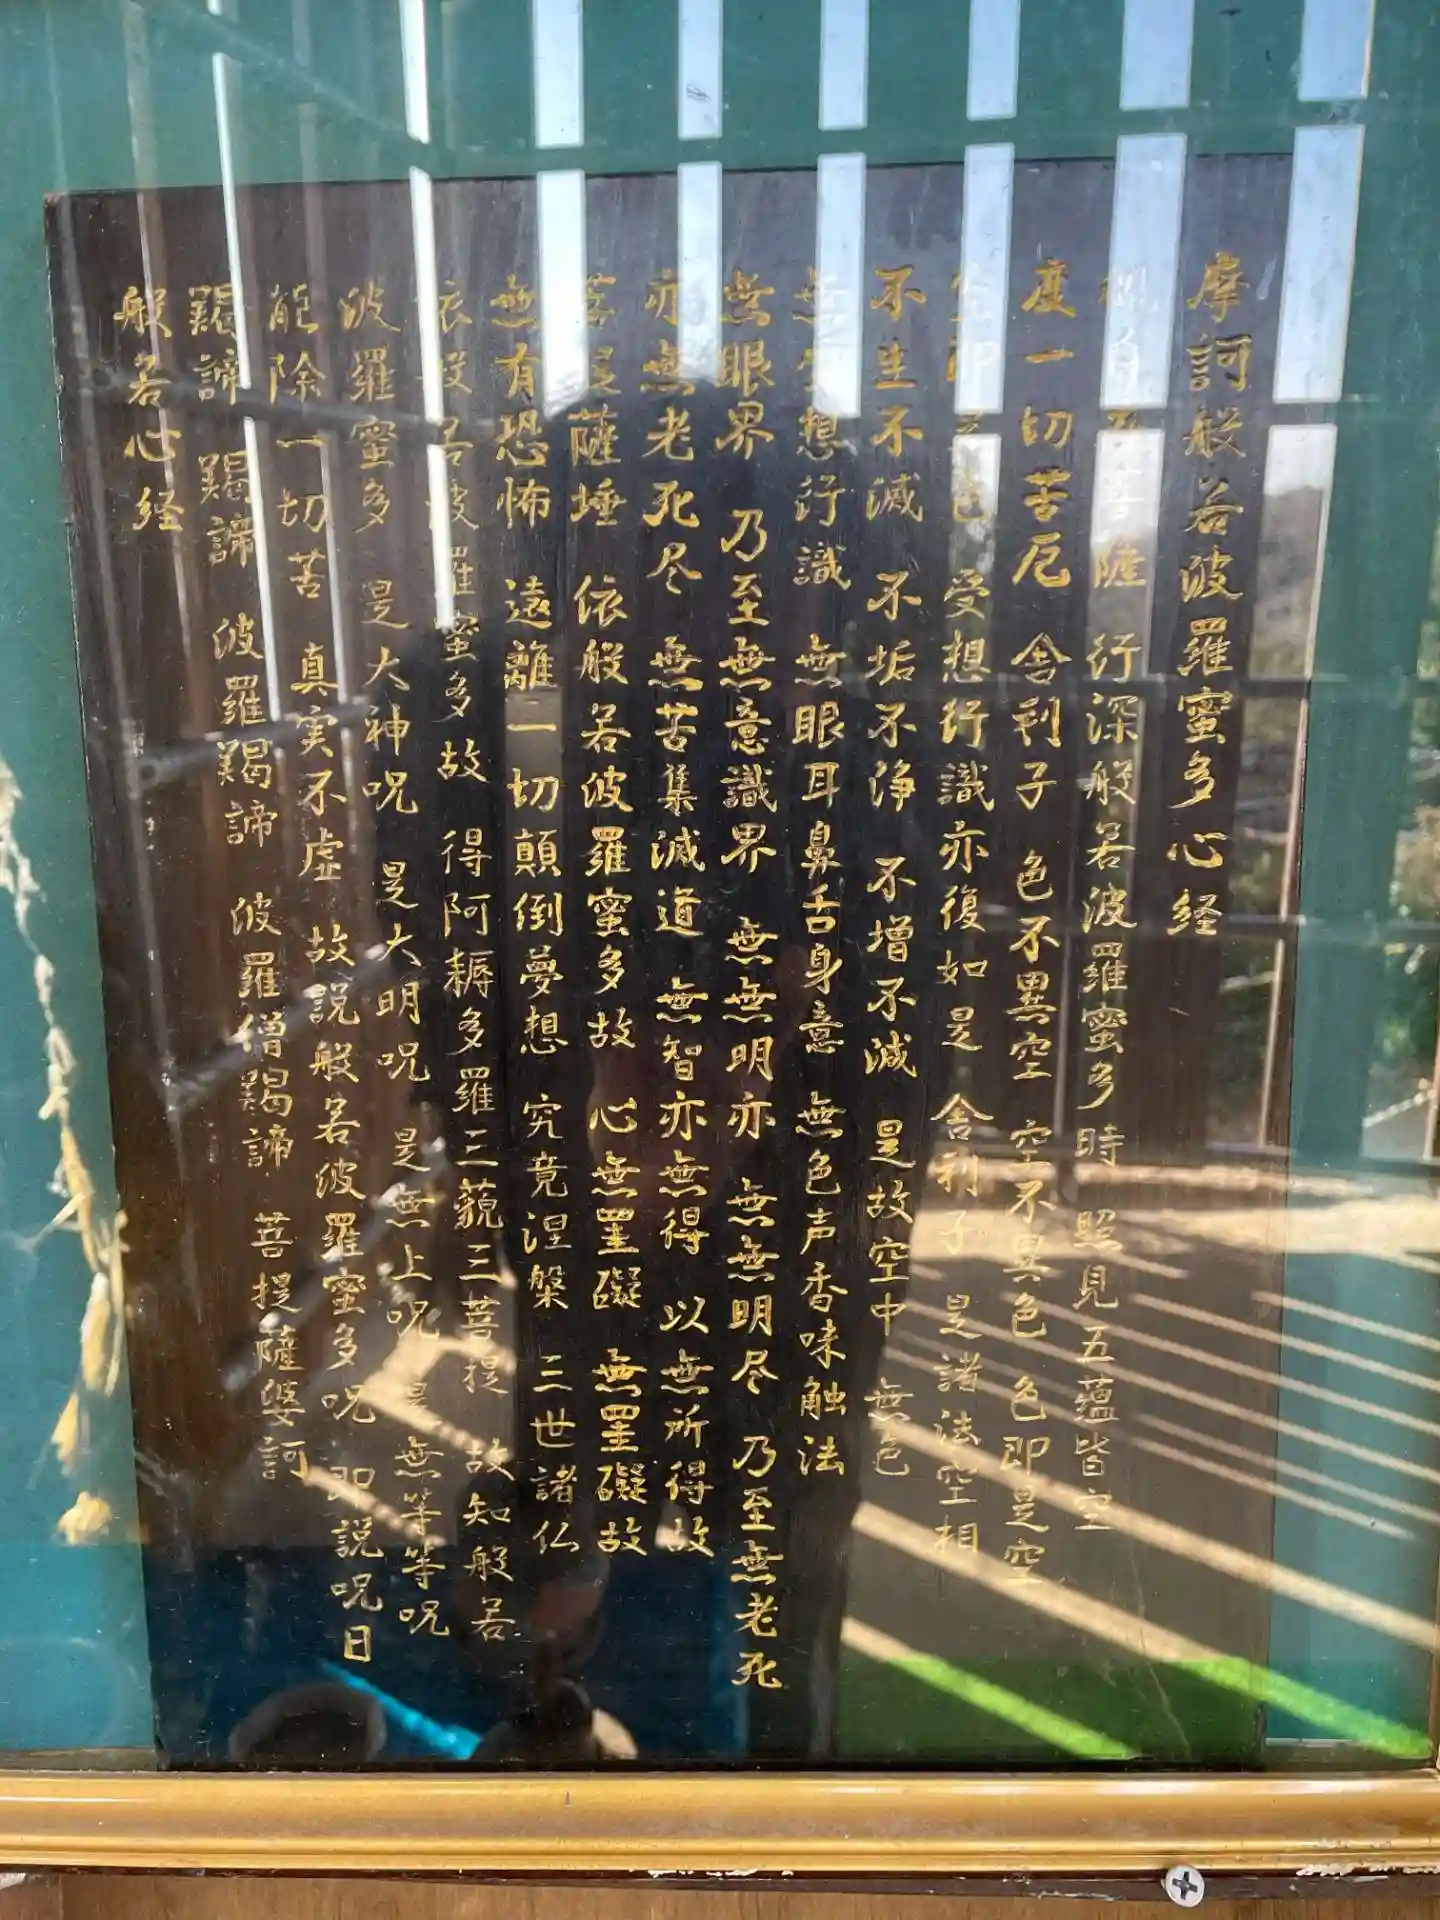 摩訶般若波羅蜜多心経
観自在菩薩 行深般若波羅蜜多時 照見五蘊皆空
度一切苦厄 舎利子 色不異空 空不異色 色即是空
空即是色 受想行識亦復如是 舎利子 是諸法空相
不生不滅 不垢不浄 不増不減 是故空中 無色
無受想行識 無眼耳鼻舌身意 無色声香味触法
無眼界 乃至無意識界 無無明亦 無無明尽 乃至無老死
亦無老死尽 無苦集滅道 無智亦無得 以無所得故
菩提薩埵 依般若波羅蜜多故 心無罣礙 無罣礙故
無有恐怖 遠離一切顛倒夢想 究竟涅槃 三世諸仏
依般若波羅蜜多故 得阿耨多羅三藐三菩提 故知般若
波羅蜜多 是大神呪 是大明呪 是無上呪 是無等等呪
能除一切苦 真実不虚 故説般若波羅蜜多呪 即説呪曰
羯諦 羯諦 波羅羯諦 波羅僧羯諦 菩提薩婆訶
般若心経